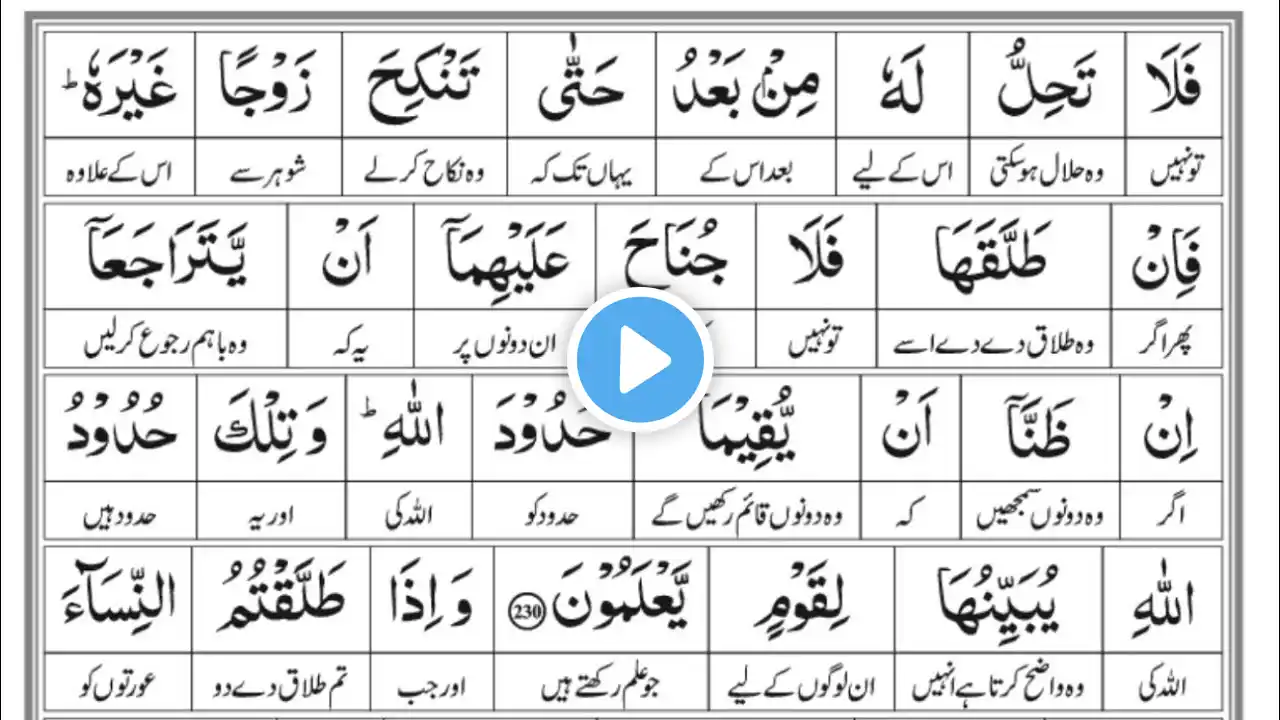 فَلَا تَحِلُّ لَهٗ مِنْۢ بَعْدُ حَتّٰى تَنْكِحَ زَوْجًا غَيْرَهٗ ؕ
تو نہیں وہ حلال ہو سکتی اس کے لیے بعد اس کے یہاں تک کہ وہ نکاح کر لے شوہر سے اس کے علاوہ
فَاِنْ طَلَّقَهَا فَلَا جُنَاحَ عَلَيْهِمَاۤ اَنْ يَّتَرَاجَعَاۤ
پھر اگر وہ طلاق دے دے اسے تو نہیں ان دونوں پر یہ کہ وہ باہم رجوع کر لیں
اِنْ ظَنَّاۤ اَنْ يُّقِيْمَا حُدُوْدَ اللّٰهِ ؕ وَ تِلْكَ حُدُوْدُ
اگر وہ دونوں سمجھیں کہ وہ دونوں قائم رکھیں گے حدود کو اللہ کی اور یہ حدود ہیں
اللّٰهِ يُبَيِّنُهَا لِقَوْمٍ يَّعْلَمُوْنَ 230 وَ اِذَا طَلَّقْتُمُ النِّسَآءَ
اللہ کی وہ واضح کرتا ہے انہیں ان لوگوں کے لیے جو علم رکھتے ہیں اور جب تم طلاق دے دو عورتوں کو